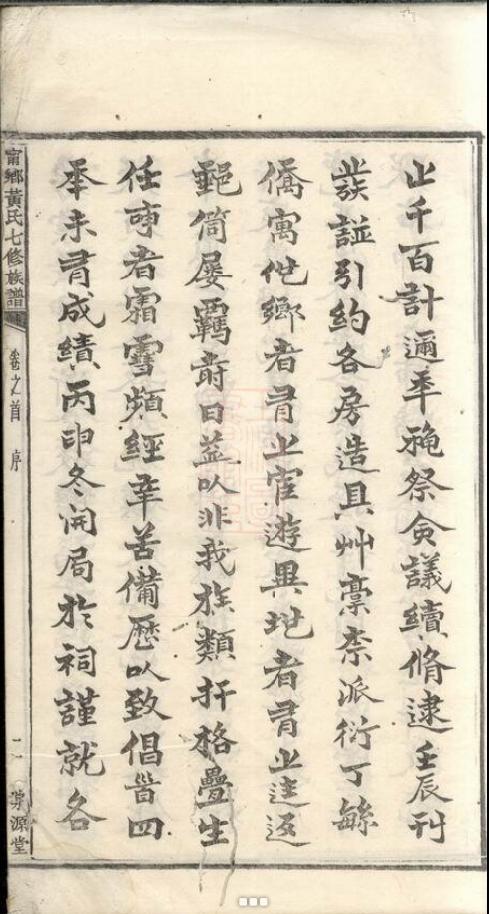 之千百計邇年祂祭僉議續脩逮壬辰刊
發譜引約各房造具艸稾柰派衍丁緐
僑寓他鄉者有之宦遊異地者有之迬返
郵筒屢羈時日並以非我族類扞格疊生
任事者霜雪頻經辛苦備歷以致倡首四
年未有成績丙申冬開局於祠謹就各
甯鄉黃氏七修族譜
卷之首 序
二
源堂